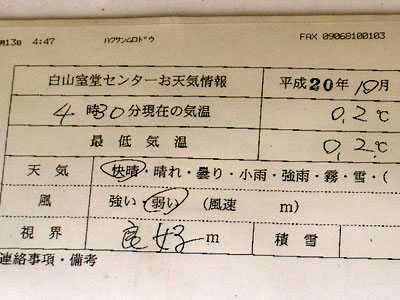 月13日 4:47 ハクサンムロドウ FAX 09068100103
白山室堂センターお天気情報 平成20年10月
4時30分現在の気温 0.2℃
最低気温 0.2℃
天気 快晴・晴れ・曇り・小雨・強雨・霧・雪・(
風 強い・弱い (風速 m)
視界 良好 m 積雪
連絡事項・備考